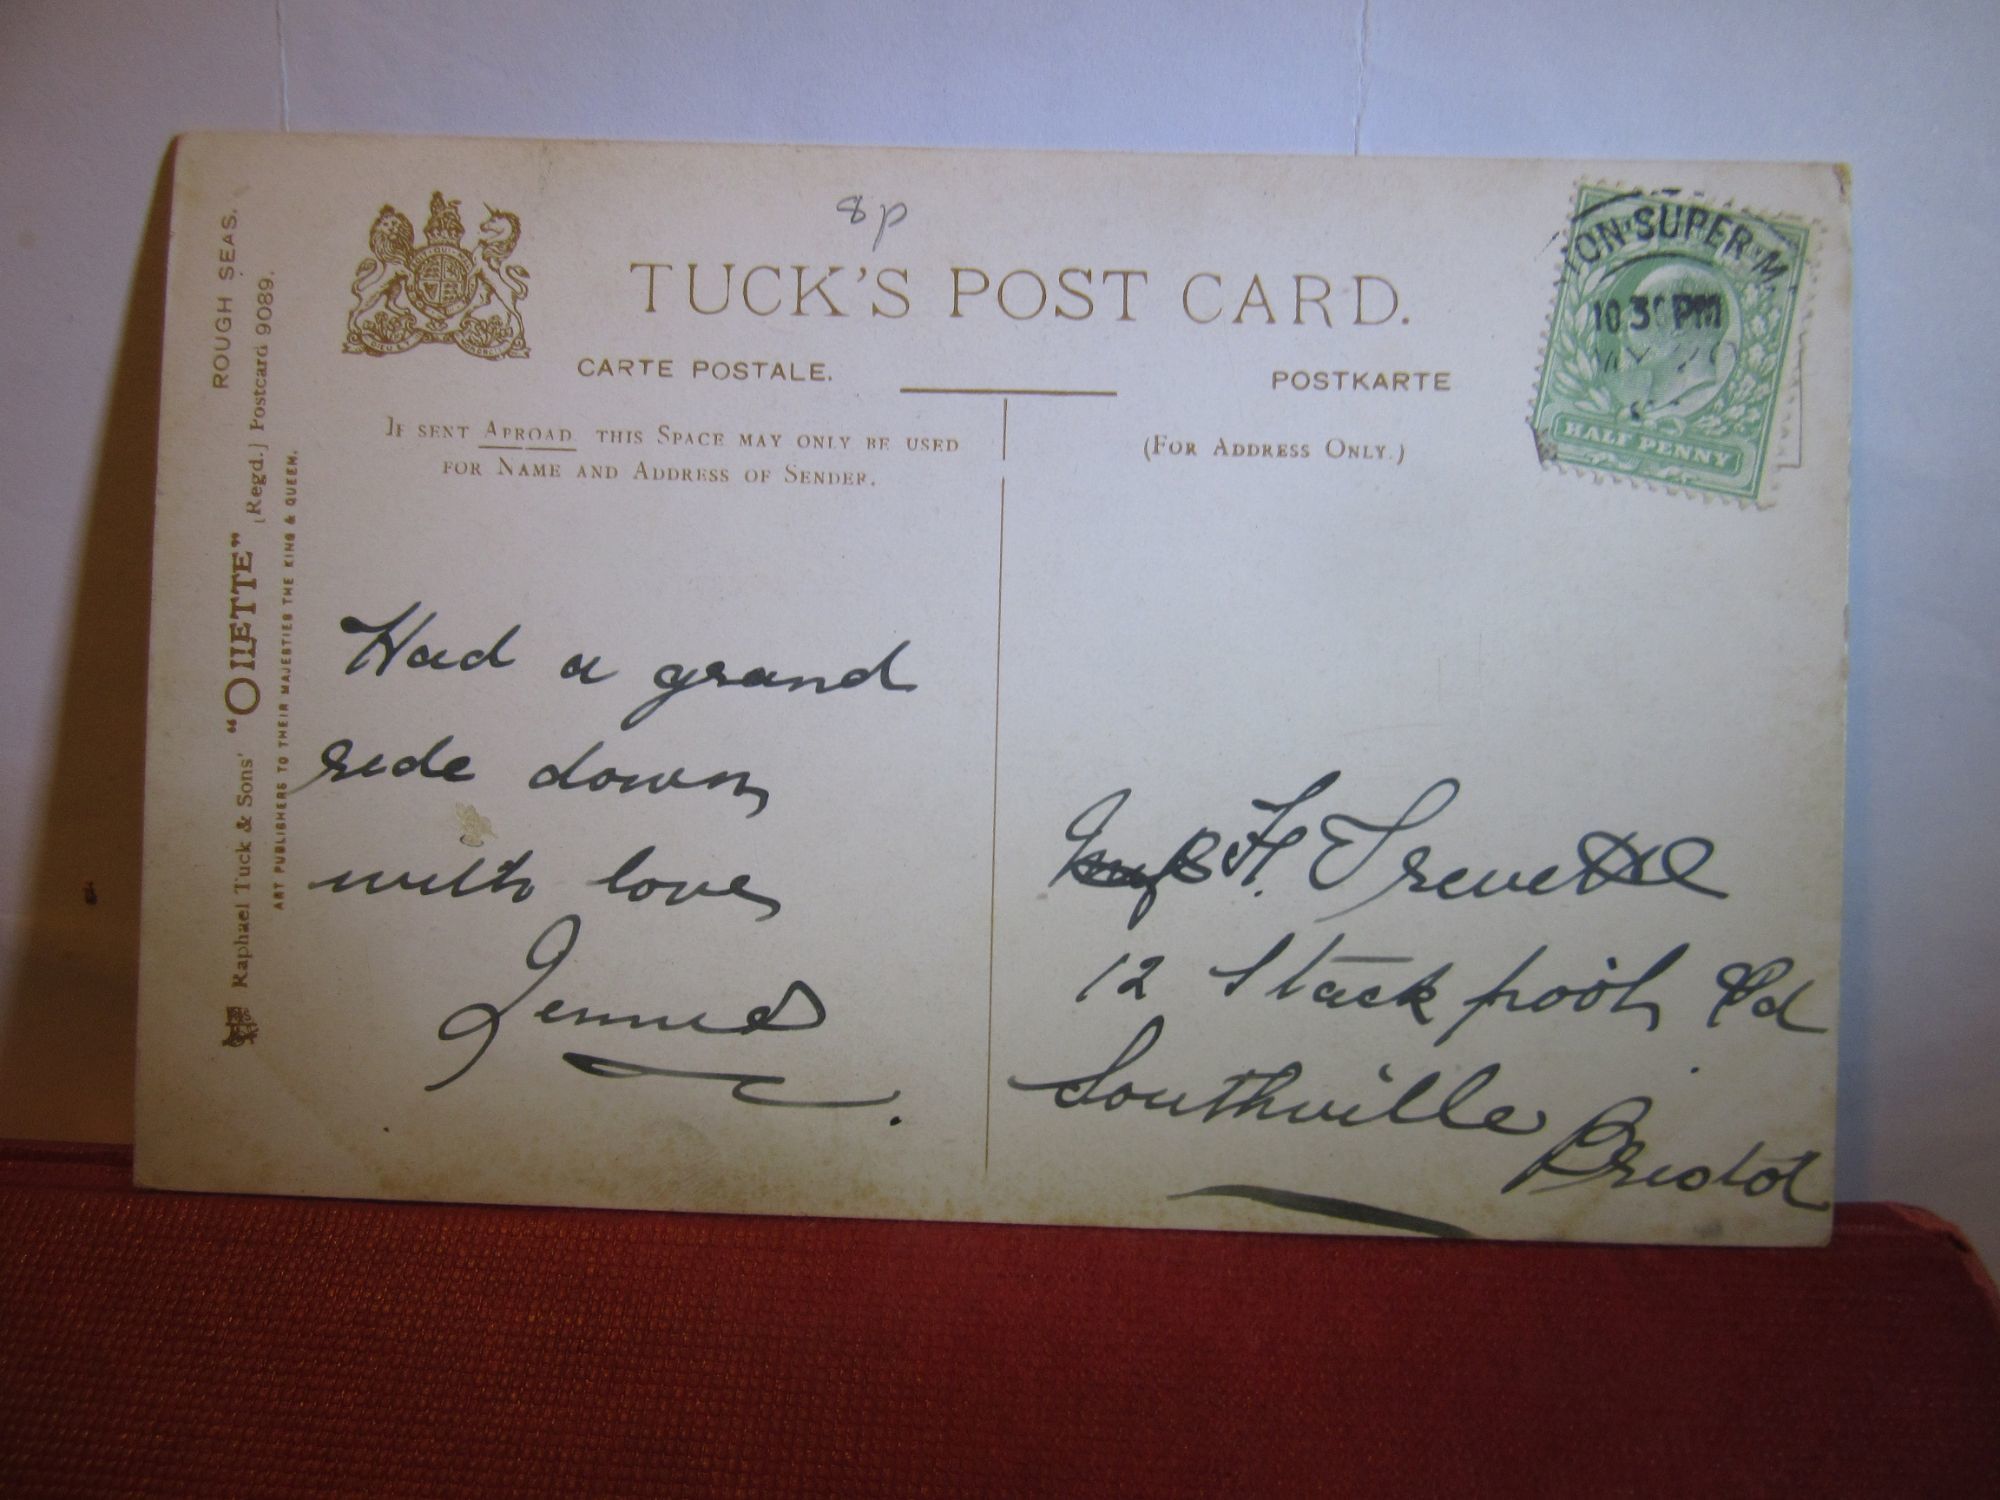 8p
TUCK'S POST CARD.
CARTE POSTALE.
POSTKARTE
IF SENT ABROAD THIS SPACE MAY ONLY BE USED
FOR NAME AND ADDRESS OF SENDER.
(FOR ADDRESS ONLY.)
ON-SUPER-M
10 30 PM
HALF PENNY
ROUGH SEAS.
Raphael Tuck & Sons' "OILETTE" [Regd.] Postcard 9089.
ART PUBLISHERS TO THEIR MAJESTIES THE KING & QUEEN.
Had a grand
ride down
with love
Jennie
F. Trevette
12 Stackpool Rd
Southville
Bristol